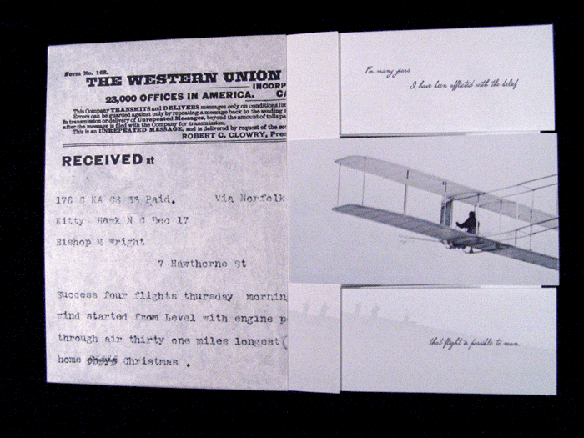 Form No. 168.
THE WESTERN UNION
INCORP
23,000 OFFICES IN AMERICA. CA
This Company TRANSMITS and DELIVERS messages only on conditions
Errors can be guarded against only by repeating a message back to the sending
in transmission or delivery of Unrepeated Messages, beyond the amount of tolls
after the message is filed with the Company for transmission.
This is an UNREPEATED MESSAGE, and is delivered by request of the
ROBERT C. CLOWRY, Pres
RECEIVED at
176 C KA CS 33 Paid. Via Norfolk
Kitty Hawk N C Dec 17
Bishop M Wright
7 Hawthorne St
Success four flights thursday mornin
wind started from Level with engine p
through air thirty one miles longest
home Christmas .
For many years
I have been afflicted with the belief
that flight is possible to man.